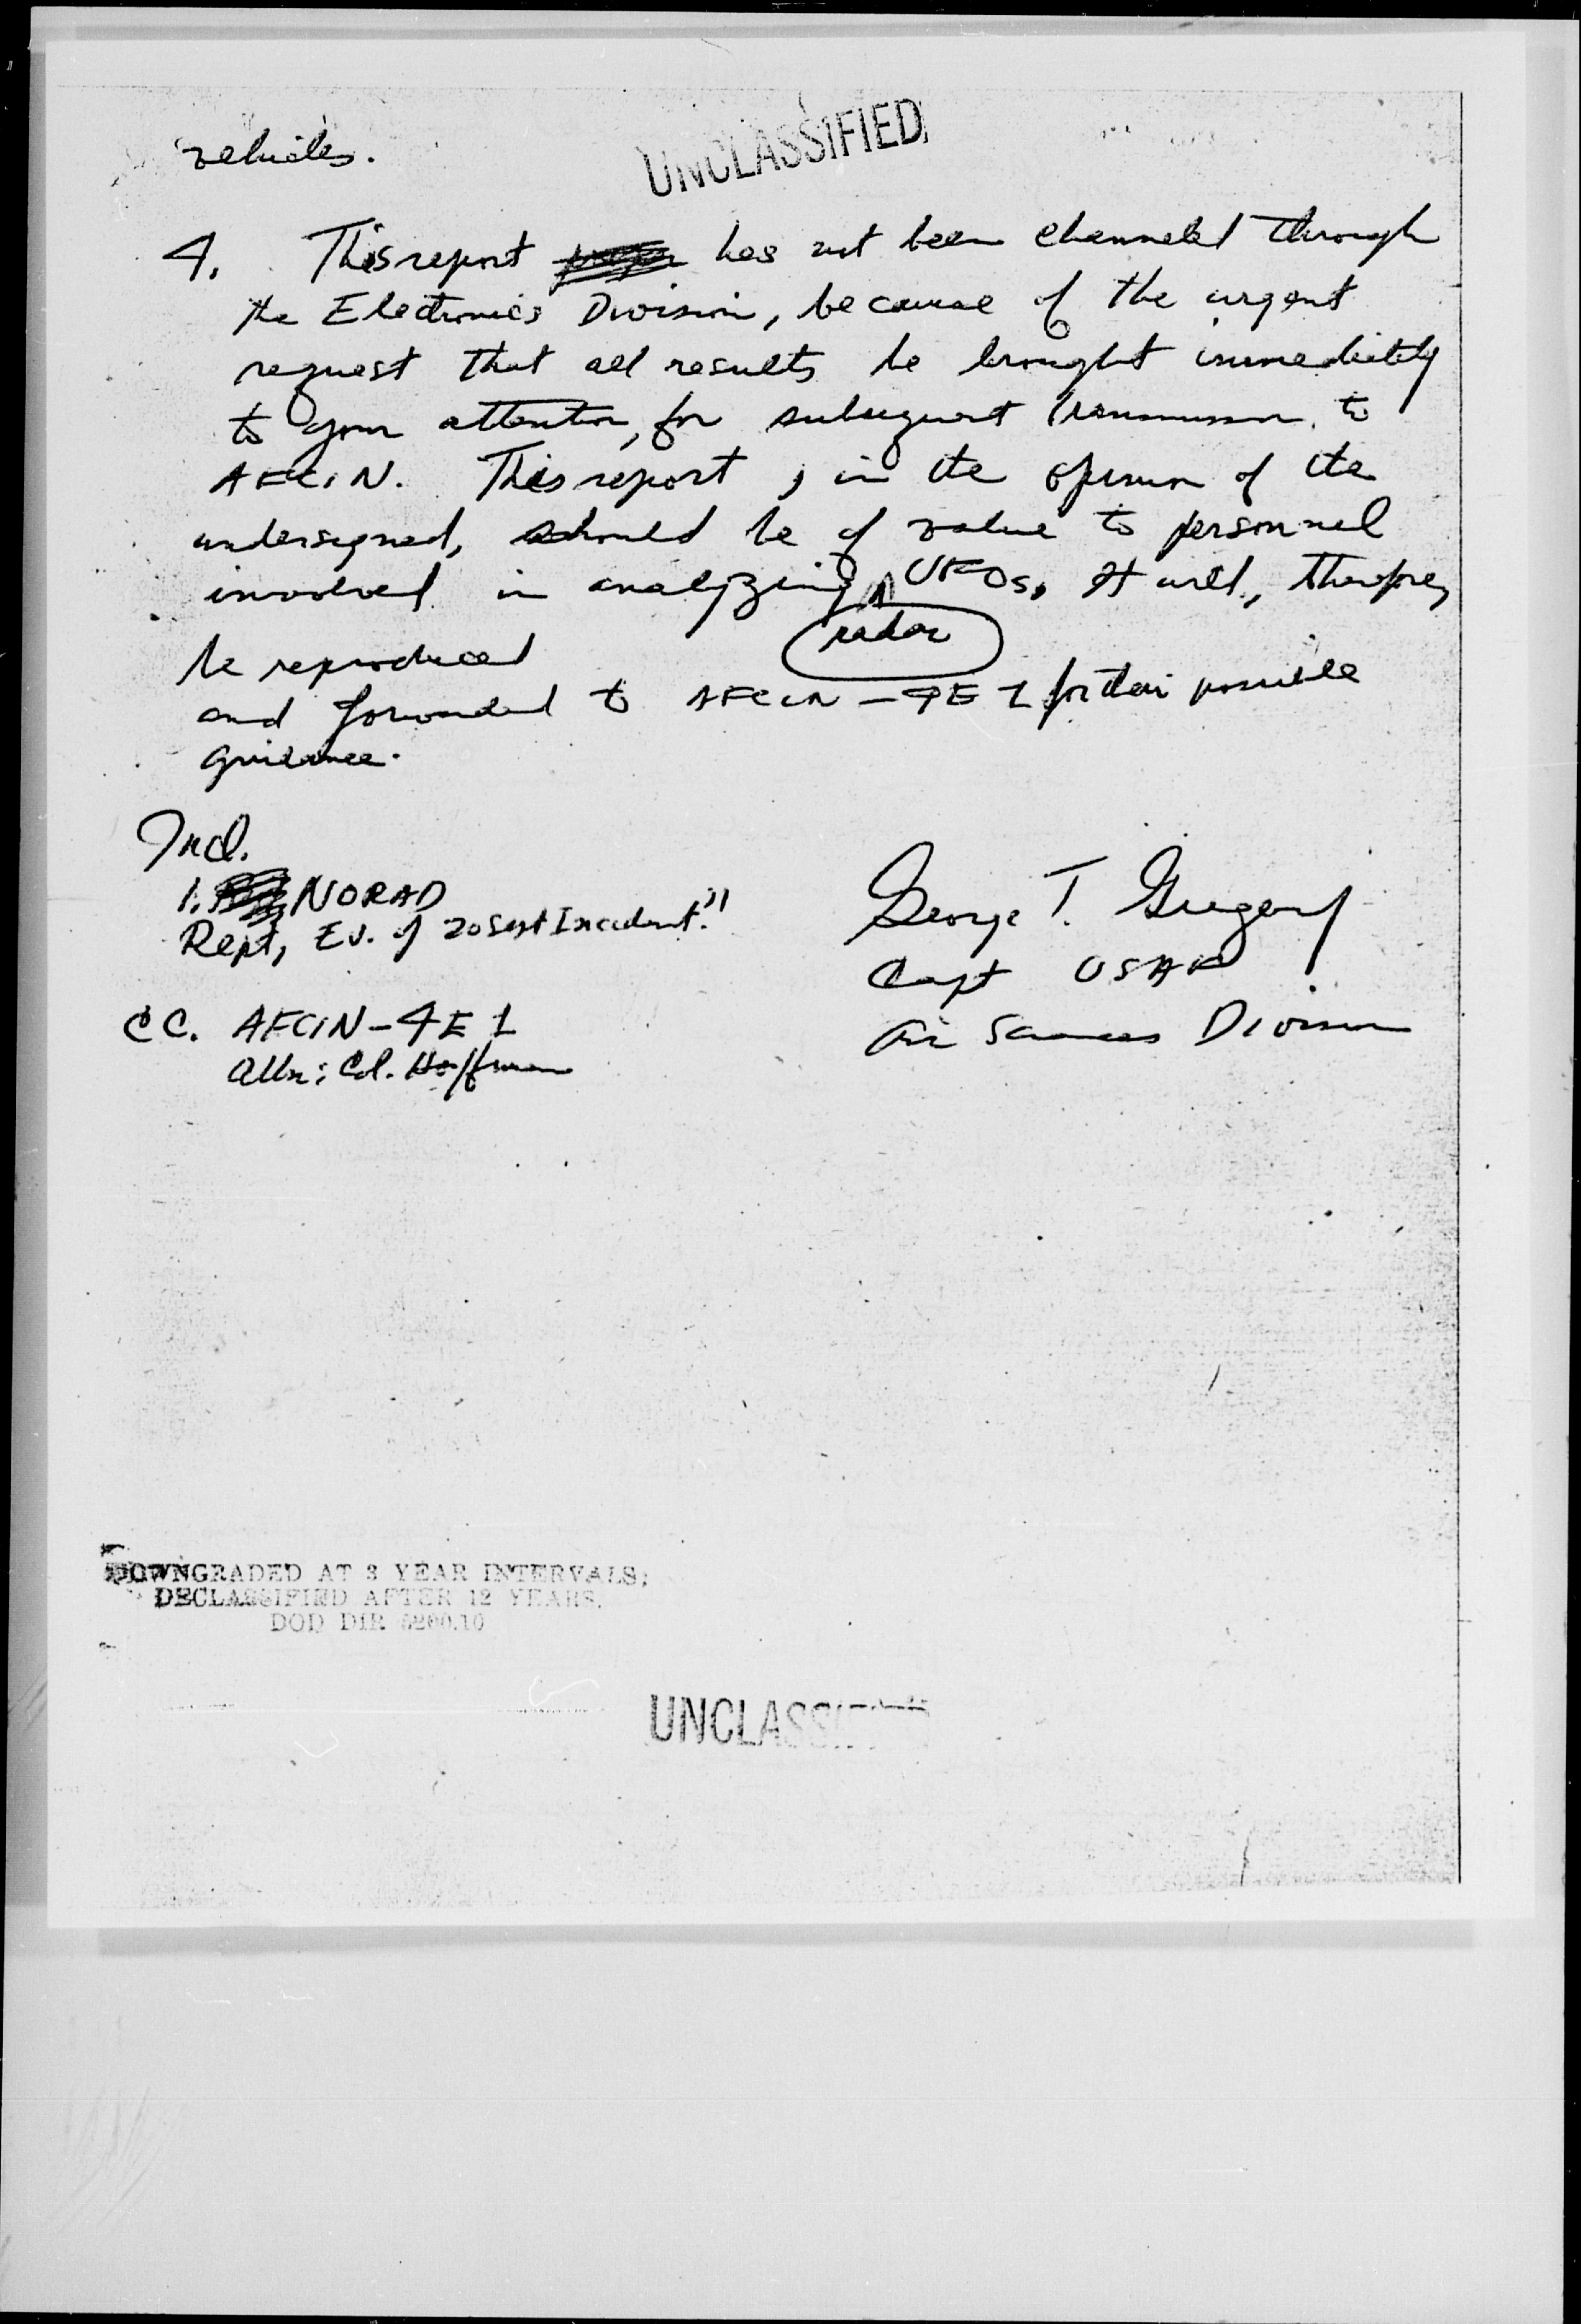 vehicles.
UNCLASSIFIED
4. This report has not been channeled through
the Electronics Division, because of the urgent
request that all results be brought immediately
to your attention, for subsequent transmission to
AFCIN. This report, in the opinion of the
undersigned, should be of value to personnel
involved in analyzing UFOs. It will, therefore,
radar
be reproduced
and forwarded to AFCIN-4E1 for their possible
guidance.
Incl.
1. NORAD
Rept, Ev. of 20 Sept Incident."
George T. Gregory
Capt USAF
Air Sciences Division
CC. AFCIN-4E1
Attn: Col. Hoffman
DOWNGRADED AT 3 YEAR INTERVALS;
DECLASSIFIED AFTER 12 YEARS.
DOD DIR 5200.10
UNCLASSIFIED